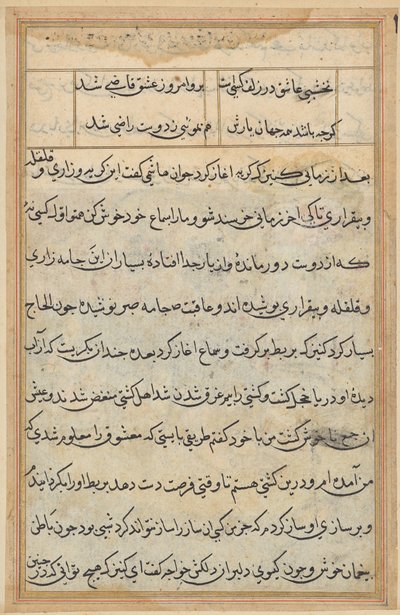 نخشبی عاشق در زلف کسی ست بر وا مروز عشق قاضی شد
گرچه باشد همه جهان یارش هم بموئی ز دوست راضی شد
بعد از زمانی کنیزک گریه اغاز کرد جوان هاشمی گفت این گریه و زاری و قلقله
و بیقراری تا کی اخر زمانی خرسند شو و مارا بسماع خود خوش کن هم تو اول کسی نهٔ
که از دوست دور ماندهٔ و از یار جدا افتادهٔ بسیار از این جامه زاری
و قلقله و بیقراری پوشیده اند و عاقبت جامه صبر پوشیده چون الحاح
بسیار کرد کنیزک بربط برگرفت و سماع اغاز کرد بعده چندان بگریست که از آب
دیدهٔ او دریا خجل گشت و کشتی را بیم غرق شدن شد اهل کشتی منغض شدند و عیش
ان جمع ناخوش گشت من با خود گفتم طریقی بایستی که معشوق را معلوم شدی که
من آمده ام و درین کشتی هستم تا وقتی فرصت دست دهد بربط او را بگردانیدم
و بر سازی او ساز کردم که جز من کسی ان ساز را ساز نتواند کرد شبی بود چون باطن
بیغمان خوش و چون گیسوی دلبران دلکش خواجه گفت ای کنیزک هیچ توانی که در چنین